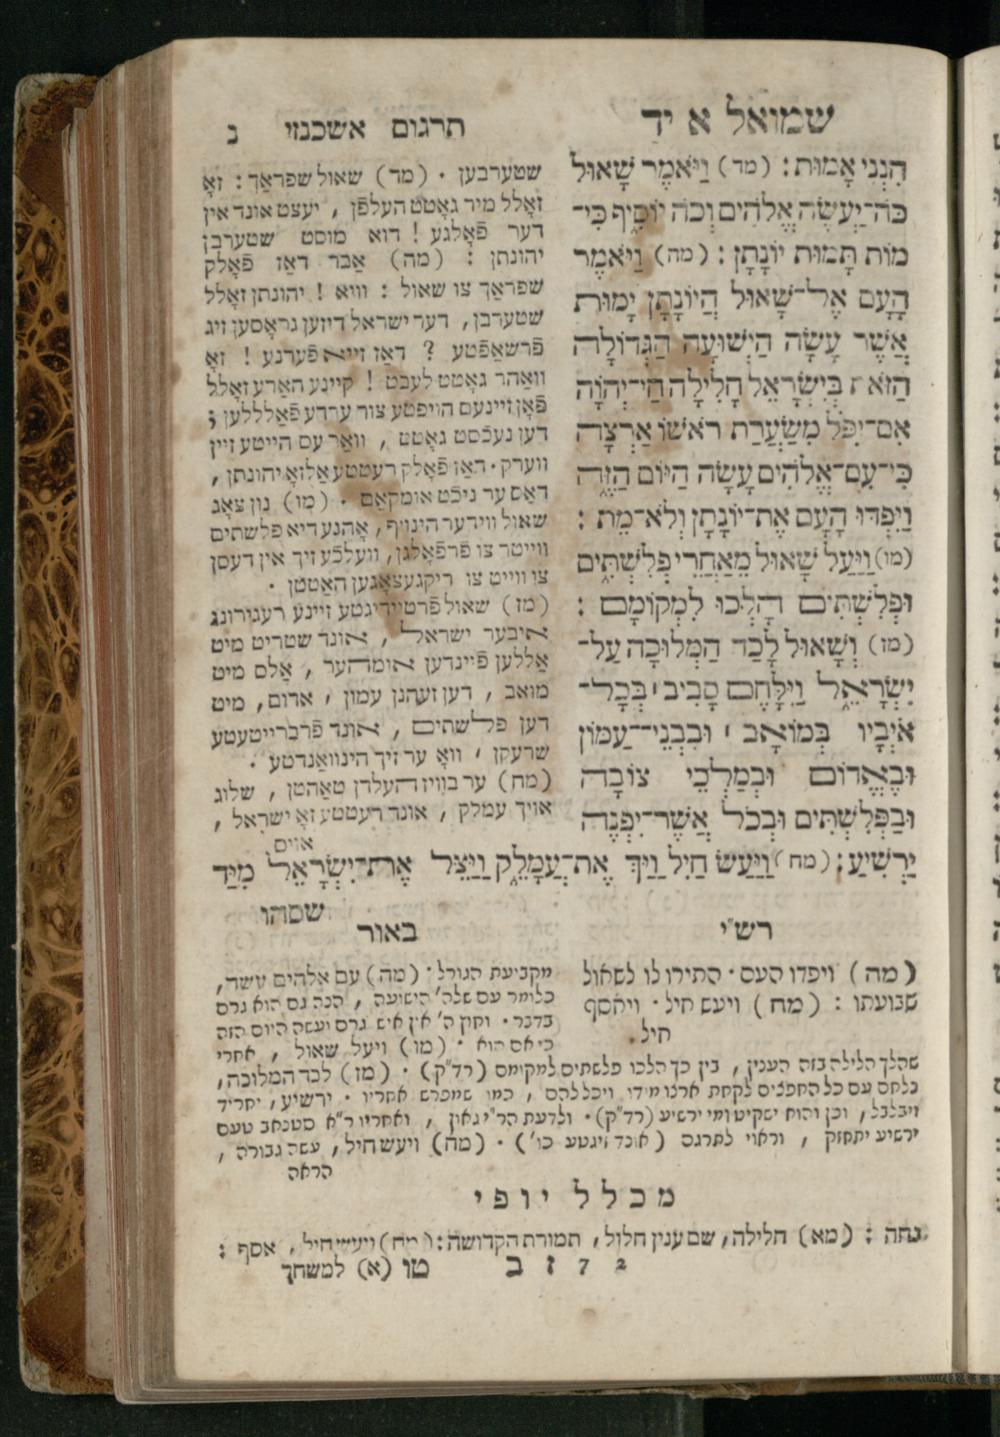 שמואל א יד
תרגום אשכנזי נ
הִנְנִי אָמוּת׃ (מד) וַיֹּאמֶר שָׁאוּל
כֹּה־יַעֲשֶׂה אֱלֹהִים וְכֹה יוֹסִיף כִּי־
מוֹת תָּמוּת יוֹנָתָן׃ (מה) וַיֹּאמֶר
הָעָם אֶל־שָׁאוּל הֲיוֹנָתָן יָמוּת
אֲשֶׁר עָשָׂה הַיְשׁוּעָה הַגְּדוֹלָה
הַזֹּאת בְּיִשְׂרָאֵל חָלִילָה חַי־יְהוָֹה
אִם־יִפֹּל מִשַּׂעֲרַת רֹאשׁוֹ אַרְצָה
כִּי־עִם־אֱלֹהִים עָשָׂה הַיּוֹם הַזֶּה
וַיִּפְדּוּ הָעָם אֶת־יוֹנָתָן וְלֹא־מֵת׃
(מו) וַיַּעַל שָׁאוּל מֵאַחֲרֵי פְּלִשְׁתִּים
וּפְלִשְׁתִּים הָלְכוּ לִמְקוֹמָם׃
(מז) וְשָׁאוּל לָכַד הַמְּלוּכָה עַל־
יִשְׂרָאֵל וַיִּלָּחֶם סָבִיב ׀ בְּכָל־
אֹיְבָיו בְּמוֹאָב ׀ וּבִבְנֵי־עַמּוֹן
וּבֶאֱדוֹם וּבְמַלְכֵי צוֹבָה
וּבַפְּלִשְׁתִּים וּבְכֹל אֲשֶׁר־יִפְנֶה
יַרְשִׁיעַ׃ (מח) וַיַּעַשׂ חַיִל וַיַּךְ אֶת־עֲמָלֵק וַיַּצֵּל אֶת־יִשְׂרָאֵל מִיַּד
שסהו
שטערבען . (מד) שאול שפראַך : זאָ
זאָלל מיר גאָטט העלפֿן , יעצט אונד אין
דער פֿאָלגע ! דוא מוסט שטערבן
יהונתן : (מה) אַבר דאַז פֿאָלק
שפראַך צו שאול : וויא ! יהונתן זאָלל
שטערבן, דער ישראל דיזען גראָסען זיג
פֿרשאַפֿטע ? דאַז זייא פֿערנע ! זאָ
וואַהר גאָטט לעבט ! קיינע האַרע זאָלל
פֿאָן זיינעם הויפטע צור ערדע פֿאַלללען ;
דען נעכֿסט גאָטט , וואַר עס הייטע זיין
ווערק. דאַז פֿאָלק רעטטע אַלזאָ יהונתן ,
דאַס ער ניכֿט אומקאַם . (מו) נון צאָג
שאול ווידער הינויף, אָהנע דיא פלשתים
ווייטר צו פֿרפֿאָלגן, וועלכֿע זיך אין דעסן
צו ווייט צו ריקגעצאָגען האַטטן .
(מז) שאול פֿרטיידיגטע זיינע רעגירונג
איבער ישראל , אונד שטריט מיט
אַללען פֿיינדען אומהער , אַלס מיט
מואב , דען זעהנן עמון , אדום, מיט
דען פלשתים , אונד פֿרברייטעטע
שרעקן , וואָ ער זיך הינוואַנדטע .
(מח) ער בוויז העלדן טאַהטן , שלוג
אויך עמלק , אונד רעטטע זאָ ישראל ,
אויס
רש״י
(מה) ויפדו העם . התירו לו לשאול
שבועתו : (מח) ויעש חיל . ויאסף
חיל.
באור
מקביעת הגורל . (מה) עם אלהים עשה,
כלומר עם שלה׳ הישועה , הנה גם הוא גרם
בדבר . וחוץ ה׳ אין איש גרם יעשה היום הזה
כי אם הוא . (מו) ויעל שאול , אחרי
שהלך הלילה בזה הענין , בין כך הלכו פלשתים למקומם (רד״ק) . (מז) לכד המלוכה,
נלחם עם כל החפצים לקחת ארצו מידו ויכל להם , כמו שמפרש אחריו . ירשיע, יחריד
ויבלבל, וכן והוא ישקיט ומי ירשיע (רד״ק). ולדעת הר״י גאון , ואחריו ר״א סטנאב טעם
ירשיע יתחזק , וראוי לתרגם (אונד זיגטע כו׳) . (מח) ויעש חיל , עשה גבורה ,
הראה
מכלל יופי
נחה : (מא) חלילה, שם ענין חלול, תמורת הקדושה: (מח) ויעש חיל, אסף :
72 ז ב טו (א) למשחך